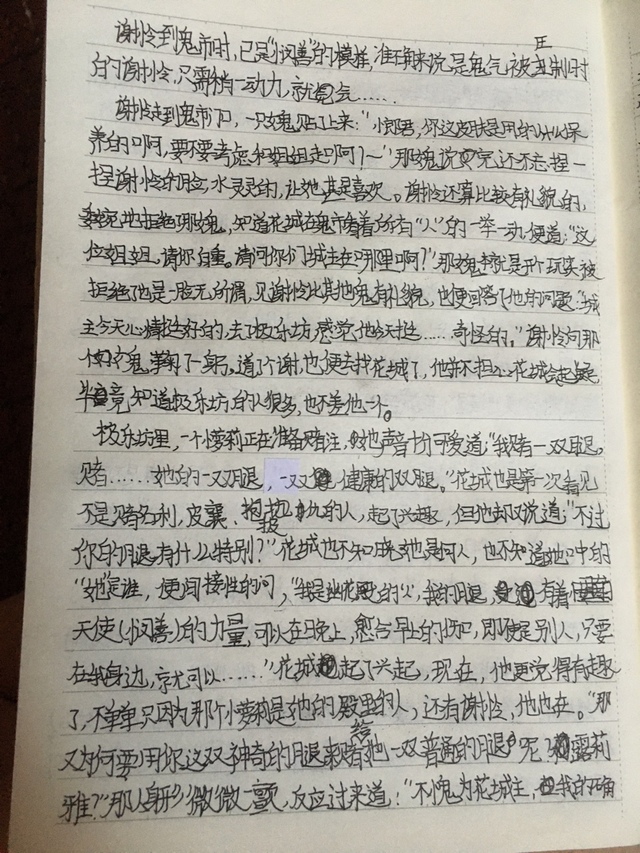 正
谢怜到鬼市时,已是“悯善”的模样,准确来说是鬼气被压制时
的谢怜,只需稍一动力,就鬼气……
谢怜走到鬼市口,一女鬼贴上来:“小郎君,你这皮肤是用的什么保
养的啊,要不要考虑和姐姐走啊?~”那鬼说完还不忘捏一
捏谢怜的脸,水灵灵的,让她甚是喜欢。谢怜还算比较有礼貌的,
地拒绝那鬼,知道花城在鬼市看着所有“人”的一举一动,便道:“这
位姐姐,请你自重。请问你们城主在哪里啊?”那鬼就是开个玩笑被
拒绝了也是一脸无所谓,见谢怜比其他鬼有礼貌,也便回答了他的问题:“城
主今天心情挺好的,去了极乐坊,感觉他今天挺……奇怪的。”谢怜向那
女鬼鞠了一躬。道了谢,也便去找花城了,他并不担心花城会起疑
毕竟知道极乐坊的人很多,也不差他一个。
极乐坊里,一个小萝莉正在准备赌注,她声音十分可爱道:“我赌一双腿。
赌……她的一双腿,一双 健康的双腿。”花城也是第一次看见
不是赌名利,皮囊、报仇的人,起了兴趣,但他却又说道:“不过
你的腿有什么特别?”花城也不知晓她是何人,也不知道她口中的
“她”是谁,便间接性的问,“我是 花殿的人,我的腿, 有着
天使(悯善)的力量,可以在晚上,愈合早上的伤口,即使是别人,只要
在我身边,就可以……”花城起了兴起,现在,他更觉得有趣
了,不单单只因为那个小萝莉是她的殿里的人,还有谢怜,他也在。“那
又为何要用你这双神奇的腿来赌给她一双普通的腿呢? 露莉
雅?”那人身形微微一颤,反应过来道:“不愧为花城主, 我的确